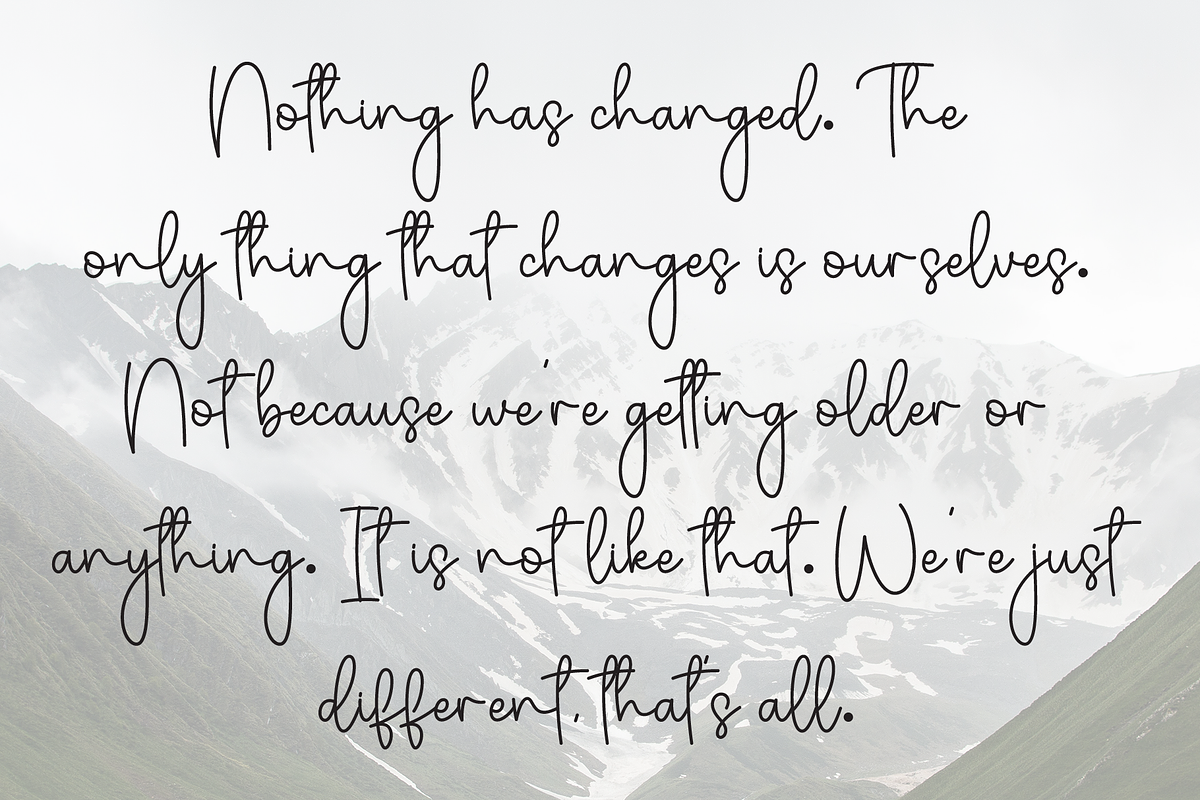 Nothing has changed. The
only thing that changes is ourselves.
Not because we're getting older or
anything. It is not like that. We're just
different, that's all.